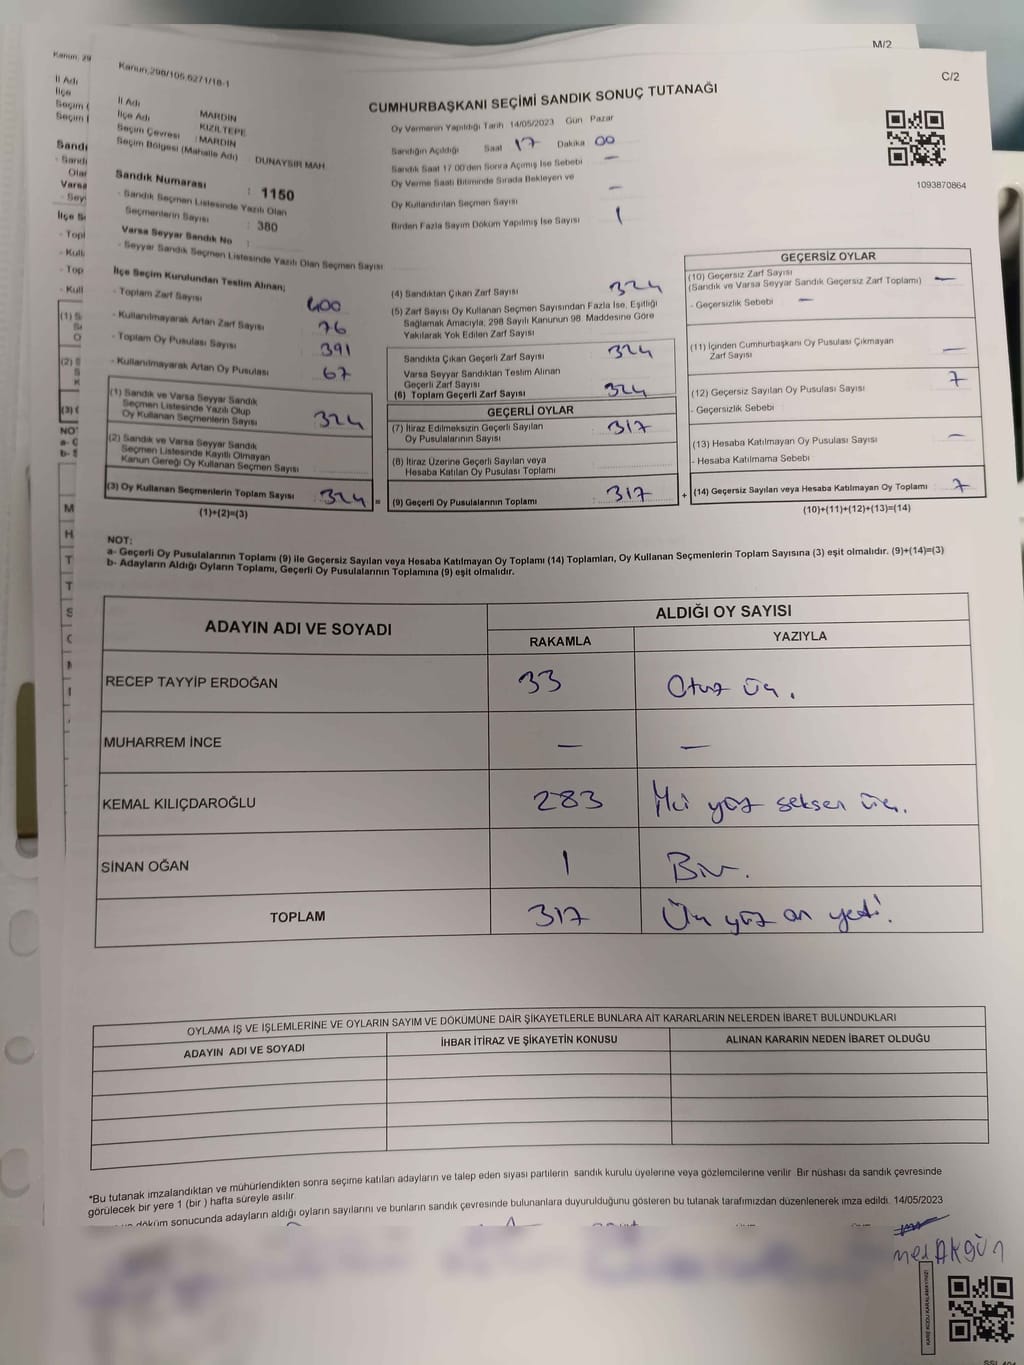 M/2
Kanun, 29
Kanun,298/105,6271/18-1
C/2
CUMHURBAŞKANI SEÇİMİ SANDIK SONUÇ TUTANAĞI
İl Adı MARDİN
İlçe Adı KIZILTEPE
Seçim Çevresi : MARDİN
Seçim Bölgesi (Mahalle Adı) : DUNAYSIR MAH.
Oy Vermenin Yapıldığı Tarih 14/05/2023 Gün Pazar
Sandığın Açıldığı Saat 17 Dakika 00
Sandık Saat 17:00'den Sonra Açımış İse Sebebi —
Oy Verme Saati Bitiminde Sırada Bekleyen ve
Oy Kullandırılan Seçmen Sayısı —
Birden Fazla Sayım Döküm Yapılmış İse Sayısı 1
1093870864
Sandık Numarası : 1150
- Sandık Seçmen Listesinde Yazılı Olan
Seçmenlerin Sayısı : 380
Varsa Seyyar Sandık No :
- Seyyar Sandık Seçmen Listesinde Yazılı Olan Seçmen Sayısı
İlçe Seçim Kurulundan Teslim Alınan;
- Toplam Zarf Sayısı 400
- Kullanılmayarak Artan Zarf Sayısı 76
- Toplam Oy Pusulası Sayısı 391
- Kullanılmayarak Artan Oy Pusulası 67
(1) Sandık ve Varsa Seyyar Sandık
Seçmen Listesinde Yazılı Olup
Oy Kullanan Seçmenlerin Sayısı : 324
(2) Sandık ve Varsa Seyyar Sandık
Seçmen Listesinde Kayıtlı Olmayan
Kanun Gereği Oy Kullanan Seçmen Sayısı :
(3) Oy Kullanan Seçmenlerin Toplam Sayısı : 324 =
(1)+(2)=(3)
(4) Sandıktan Çıkan Zarf Sayısı 324
(5) Zarf Sayısı Oy Kullanan Seçmen Sayısından Fazla İse, Eşitliği
Sağlamak Amacıyla, 298 Sayılı Kanunun 98. Maddesine Göre
Yakılarak Yok Edilen Zarf Sayısı
Sandıkta Çıkan Geçerli Zarf Sayısı 324
Varsa Seyyar Sandıktan Teslim Alınan
Geçerli Zarf Sayısı
(6) Toplam Geçerli Zarf Sayısı 324
GEÇERLİ OYLAR
(7) İtiraz Edilmeksizin Geçerli Sayılan
Oy Pusulalarının Sayısı : 317
(8) İtiraz Üzerine Geçerli Sayılan veya
Hesaba Katılan Oy Pusulası Toplamı :
(9) Geçerli Oy Pusulalarının Toplamı : 317 +
GEÇERSİZ OYLAR
(10) Geçersiz Zarf Sayısı
(Sandık ve Varsa Seyyar Sandık Geçersiz Zarf Toplamı) —
- Geçersizlik Sebebi —
(11) İçinden Cumhurbaşkanı Oy Pusulası Çıkmayan
Zarf Sayısı —
(12) Geçersiz Sayılan Oy Pusulası Sayısı 7
- Geçersizlik Sebebi
(13) Hesaba Katılmayan Oy Pusulası Sayısı —
- Hesaba Katılmama Sebebi
(14) Geçersiz Sayılan veya Hesaba Katılmayan Oy Toplamı : 7
(10)+(11)+(12)+(13)=(14)
NOT:
a- Geçerli Oy Pusulalarının Toplamı (9) ile Geçersiz Sayılan veya Hesaba Katılmayan Oy Toplamı (14) Toplamları, Oy Kullanan Seçmenlerin Toplam Sayısına (3) eşit olmalıdır. (9)+(14)=(3)
b- Adayların Aldığı Oyların Toplamı, Geçerli Oy Pusulalarının Toplamına (9) eşit olmalıdır.
ADAYIN ADI VE SOYADI
ALDIĞI OY SAYISI
RAKAMLA YAZIYLA
RECEP TAYYİP ERDOĞAN 33 Otuz üç.
MUHARREM İNCE — —
KEMAL KILIÇDAROĞLU 283 İki yüz seksen üç.
SİNAN OĞAN 1 Bir.
TOPLAM 317 Üç yüz on yedi.
OYLAMA İŞ VE İŞLEMLERİNE VE OYLARIN SAYIM VE DÖKÜMÜNE DAİR ŞİKAYETLERLE BUNLARA AİT KARARLARIN NELERDEN İBARET BULUNDUKLARI
ADAYIN ADI VE SOYADI İHBAR İTİRAZ VE ŞİKAYETİN KONUSU ALINAN KARARIN NEDEN İBARET OLDUĞU
*Bu tutanak imzalandıktan ve mühürlendikten sonra seçime katılan adayların ve talep eden siyasi partilerin sandık kurulu üyelerine veya gözlemcilerine verilir. Bir nüshası da sandık çevresinde
görülecek bir yere 1 (bir ) hafta süreyle asılır.
döküm sonucunda adayların aldığı oyların sayılarını ve bunların sandık çevresinde bulunanlara duyurulduğunu gösteren bu tutanak tarafımızdan düzenlenerek imza edildi. 14/05/2023
AKGÜN
KARE KODU KARALAMAYINIZ!